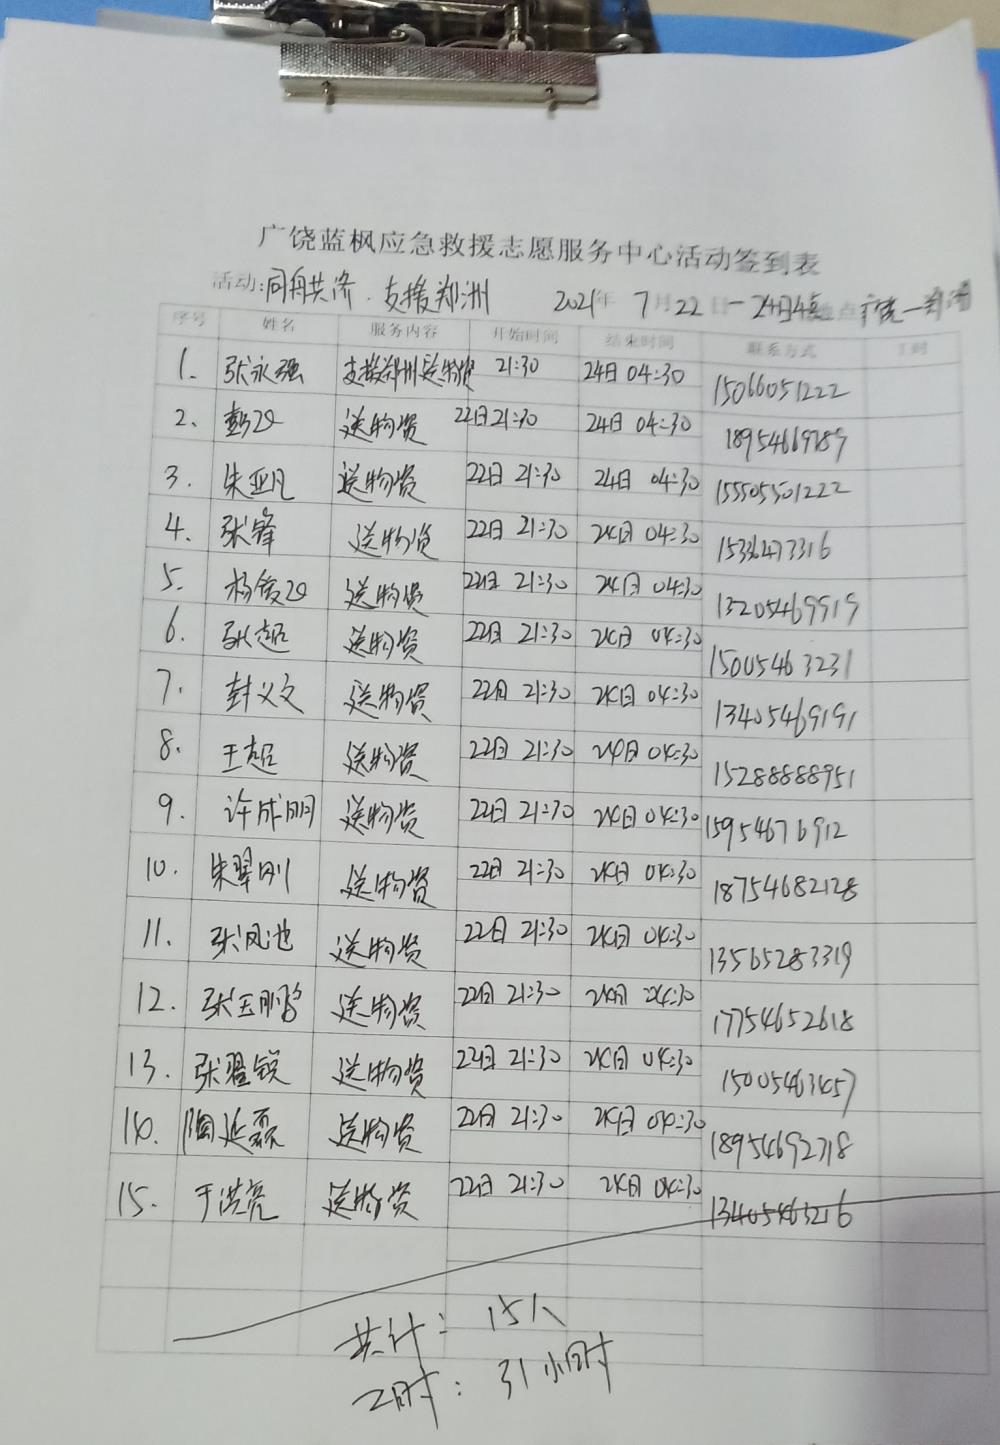 广饶蓝枫应急救援志愿服务中心活动签到表
活动:同舟共济.支援郑洲 2021年 7月22日-24日4点 地点 广饶-郑洲
序号 姓名 服务内容 开始时间 结束时间 联系方式 工时
1. 张永强 支援郑州送物资 21:30 24日 04:30 15066051222
2. 送物资 22日21:30 24日 04:30 18954669789
3. 朱亚凡 送物资 22日 21:30 24日 04:30 15505501222
4. 张锋 送物资 22日 21:30 24日 04:30 15336473316
5. 杨俊 送物资 22日 21:30 24日 04:30 13205469919
6. 张超 送物资 22日 21:30 24日 04:30 15005463231
7. 封义文 送物资 22日 21:30 24日 04:30 13405469191
8. 王超 送物资 22日 21:30 24日 04:30 15288888951
9. 许成朋 送物资 22日 21:30 24日 04:30 15954676912
10. 朱翠刚 送物资 22日 21:30 24日 04:30 18754682128
11. 张凤池 送物资 22日 21:30 24日 04:30 13565283319
12. 张玉鹏 送物资 22日 21:30 24日 04:30 17754652618
13. 张翟锐 送物资 22日 21:30 24日 04:30 15005463457
14. 陶延磊 送物资 22日 21:30 24日 04:30 18954692718
15. 于洪亮 送物资 22日 21:30 24日 04:30 13405463216
共计: 15人
工时: 31小时